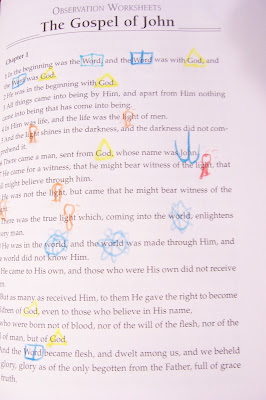 OBSERVATION WORKSHEETS
The Gospel of John
Chapter 1
1 In the beginning was the Word, and the Word was with God, and
the Word was God.
2 He was in the beginning with God.
3 All things came into being by Him, and apart from Him nothing
came into being that has come into being.
4 In Him was life, and the life was the light of men.
5 And the light shines in the darkness, and the darkness did not com-
prehend it.
6 There came a man, sent from God, whose name was John.
7 He came for a witness, that he might bear witness of the light, that
all might believe through him.
He was not the light, but came that he might bear witness of the
light.
There was the true light which, coming into the world, enlightens
every man.
He was in the world, and the world was made through Him, and
the world did not know Him.
He came to His own, and those who were His own did not receive
Him.
But as many as received Him, to them He gave the right to become
children of God, even to those who believe in His name,
who were born not of blood, nor of the will of the flesh, nor of the
will of man, but of God.
And the Word became flesh, and dwelt among us, and we beheld
glory, glory as of the only begotten from the Father, full of grace
truth.